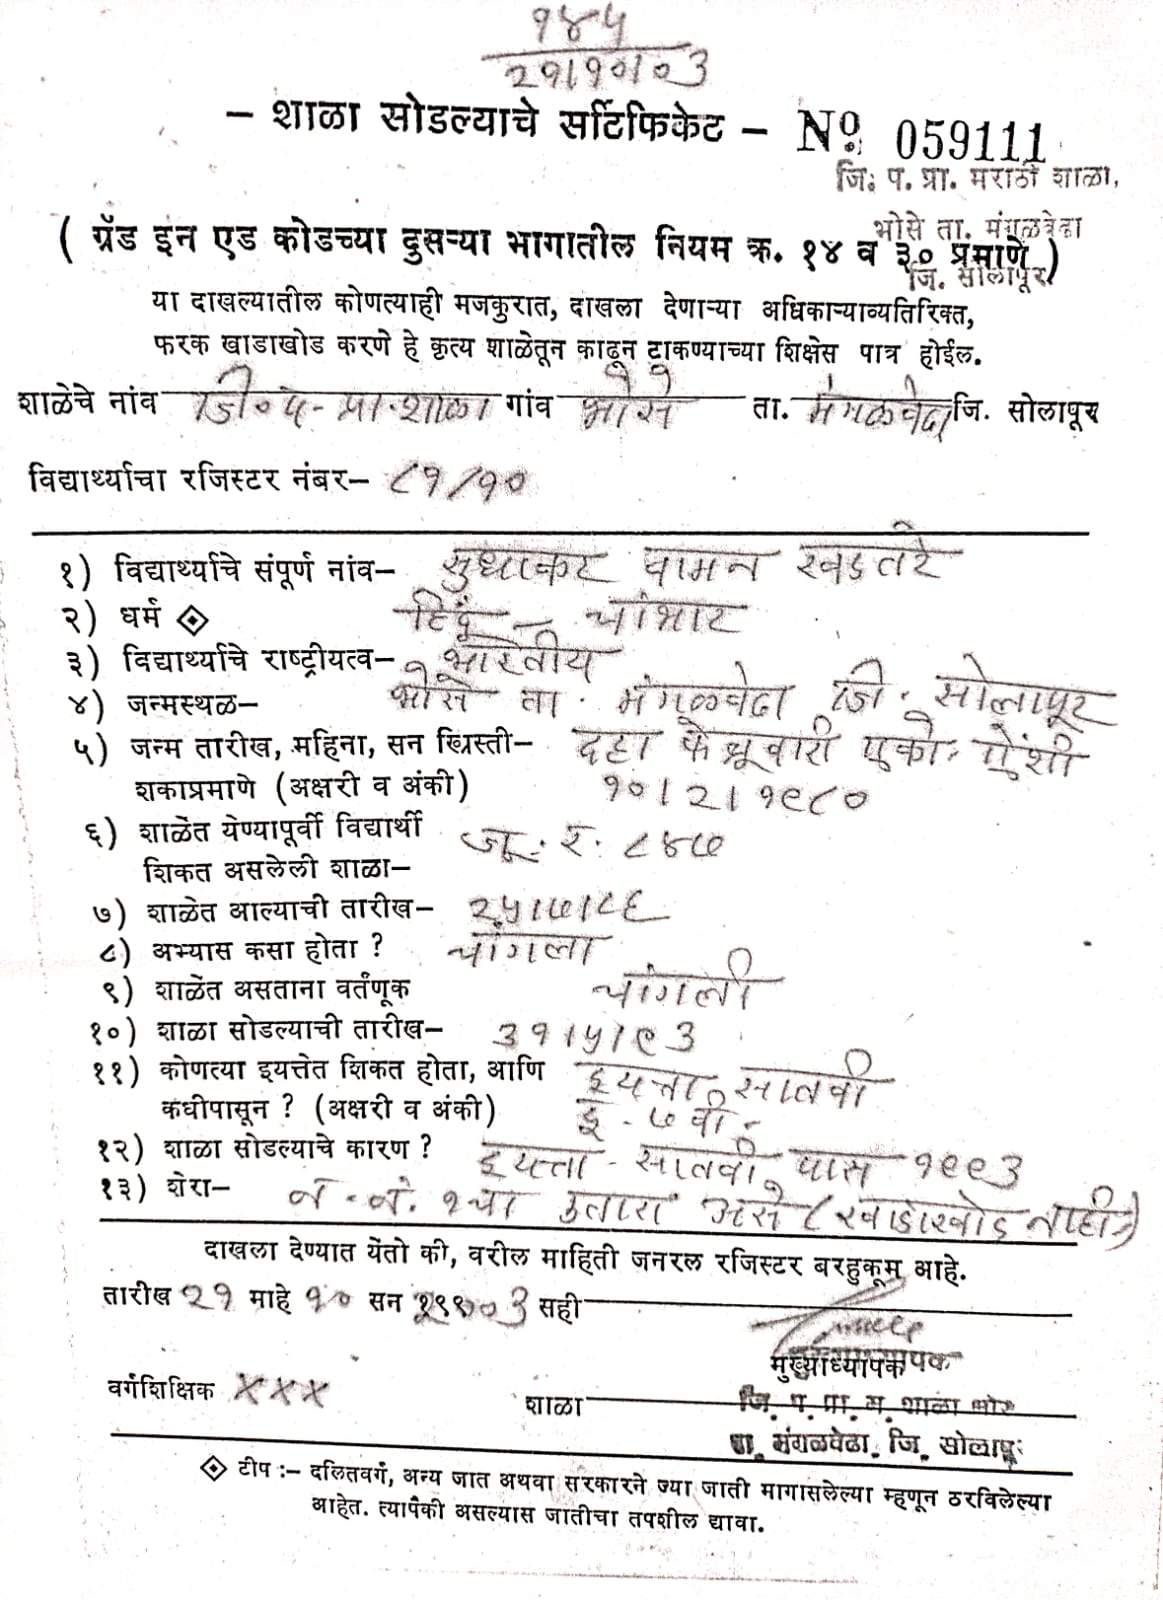 १४५
२१।१०।०३
– शाळा सोडल्याचे सर्टिफिकेट – Nº 059111
जि. प. प्रा. मराठी शाळा,
भोसे ता. मंगळवेढा
जि. सोलापूर
( ग्रॅंड इन एड कोडच्या दुसऱ्या भागातील नियम क्र. १४ व ३० प्रमाणे )
या दाखल्यातील कोणत्याही मजकुरात, दाखला देणाऱ्या अधिकाऱ्याव्यतिरिक्त,
फरक खाडाखोड करणे हे कृत्य शाळेतून काढून टाकण्याच्या शिक्षेस पात्र होईल.
शाळेचे नांव जि.प. प्रा. शाळा गांव भोसे ता. मंगळवेढा जि. सोलापूर
विद्यार्थ्याचा रजिस्टर नंबर– ८१/१०
१) विद्यार्थ्याचे संपूर्ण नांव– सुधाकर वामन खडतरे
२) धर्म हिंदू – चांभार
३) विद्यार्थ्याचे राष्ट्रीयत्व– भारतीय
४) जन्मस्थळ– भोसे ता. मंगळवेढा जि. सोलापूर
५) जन्म तारीख, महिना, सन ख्रिस्ती– दहा फेब्रूवारी एको. ऐंशी
शकाप्रमाणे (अक्षरी व अंकी) १०।२।१९८०
६) शाळेत येण्यापूर्वी विद्यार्थी जू. र. ८४७
शिकत असलेली शाळा–
७) शाळेत आल्याची तारीख– २५।७।८६
८) अभ्यास कसा होता ? चांगला
९) शाळेत असताना वर्तणूक चांगली
१०) शाळा सोडल्याची तारीख– ३१।५।९३
११) कोणत्या इयत्तेत शिकत होता, आणि इयत्ता सातवी
कधीपासून ? (अक्षरी व अंकी) इ. ७ वी.
१२) शाळा सोडल्याचे कारण ? इयत्ता - सातवी पास १९९३
१३) शेरा– नं. १चा उतारा असे (खाडाखोड नाही)
दाखला देण्यात येतो की, वरील माहिती जनरल रजिस्टर बरहुकूम आहे.
तारीख २१ माहे १० सन २००३ सही
मुख्याध्यापक
वर्गशिक्षिक ×××
शाळा जि. प. प्रा. म. शाळा भोसे
ता. मंगळवेढा. जि. सोलापूर
टीप :– दलितवर्ग, अन्य जात अथवा सरकारने ज्या जाती मागासलेल्या म्हणून ठरविलेल्या
आहेत. त्यापैकी असल्यास जातीचा तपशील द्यावा.